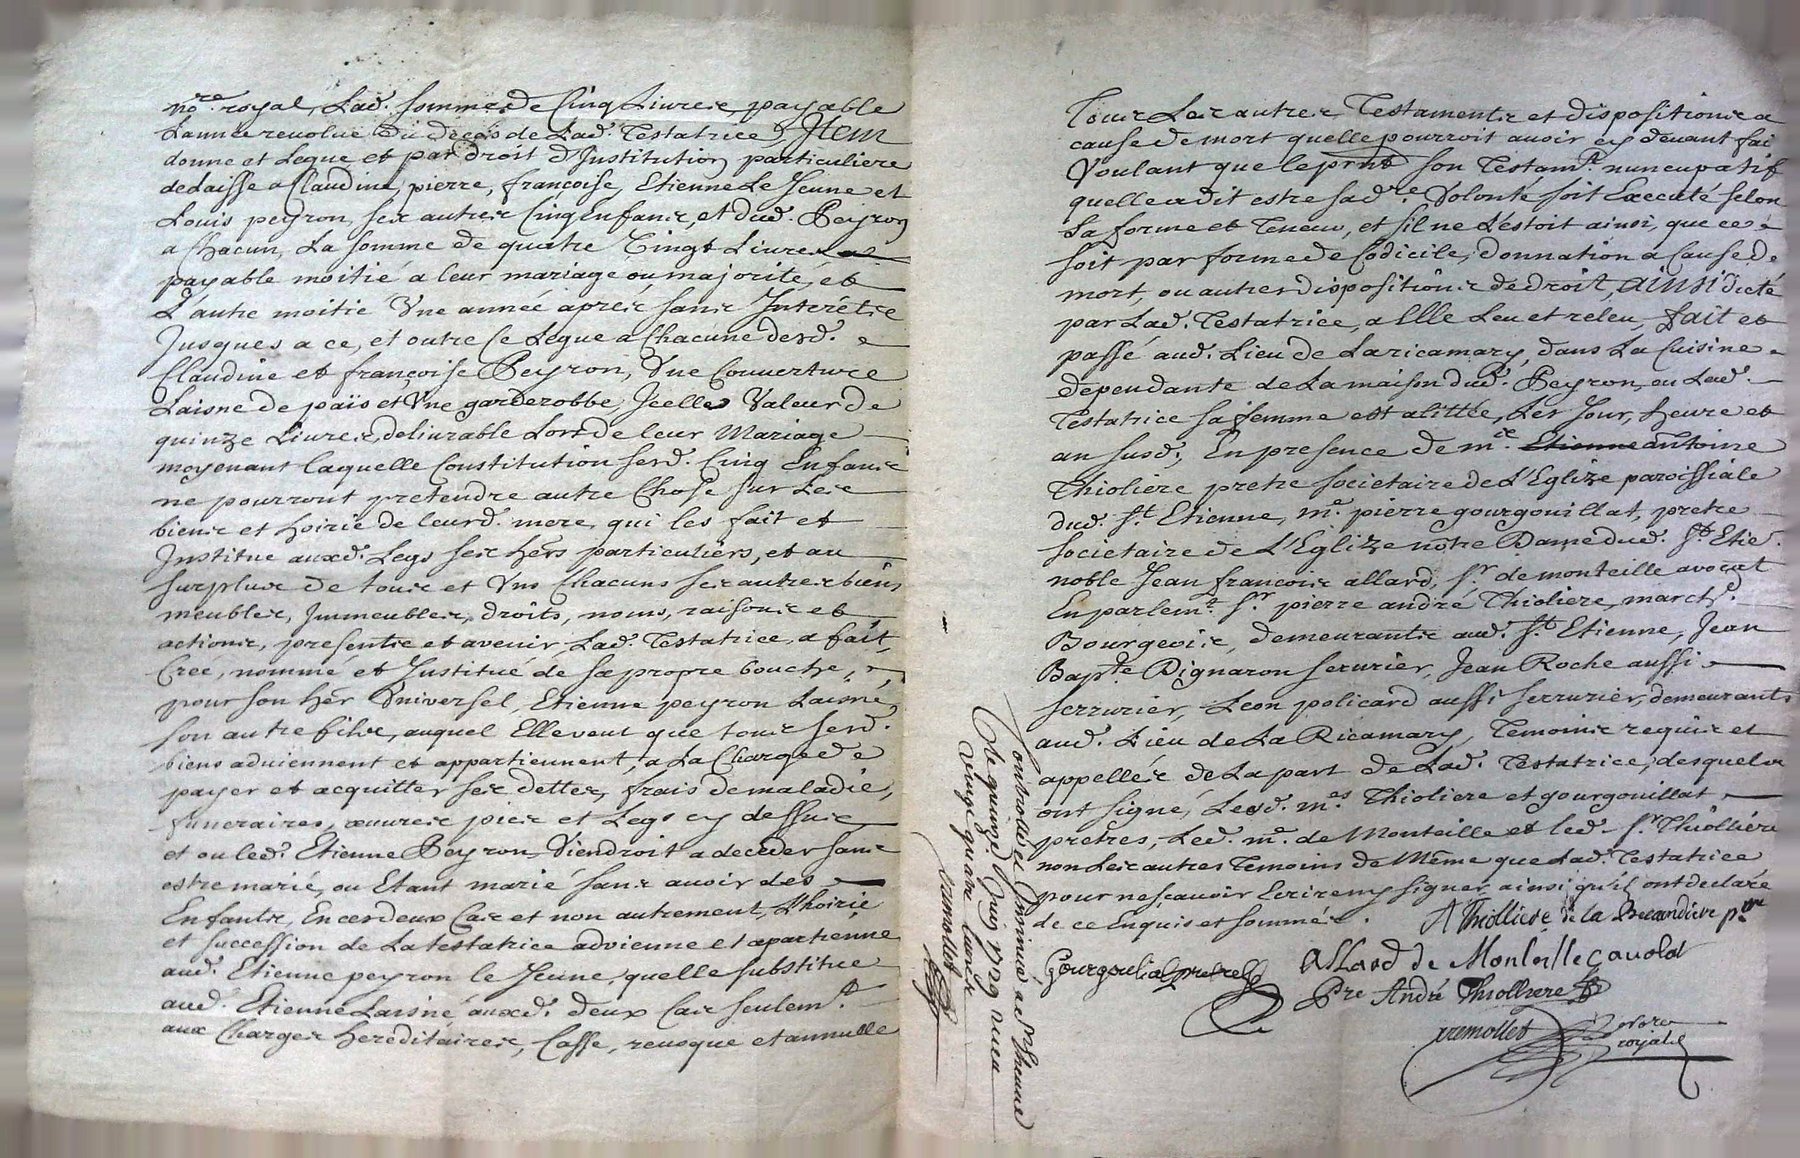 no.re royal, Lad. somme de Cinq Livres, payable
L'année revolue du deces de Lad. Testatrice, Item
donne et Legue et par droit d'Institution particuliere
delaisse a Claudine, pierre, françoise, Etienne Le Jeune et
Louis peyron, ses autres Cinq Enfans, et dud. Peyron
a chacun, La somme de quatre Vingt Livres
payable moitié a leur mariage ou majorité, et
L'autre moitié Une année apres sans Interêts
Jusques a ce, et outre Ce Legue a Chacune desd.
Claudine et françoise Peyron, Une Couverture
Laisne de païs et Une garderobbe, Icelles Valeur de
quinze Livres, delivrable Lors de leur Mariage
moyenant laquelle Constitution sesd. Cinq Enfans
ne pourront pretendre autre Chose sur Les
biens et hoirie de leurd. mere, qui les fait et
Institue auxd. Legs ses hers particuliers, et au
surplus de tous et Uns Chacuns ses autres biens
meubles, Immeubles, droits, noms, raisons et
actions, presents et avenir, Lad. Testatrice, a fait,
Créé, nommé et Institué de sa propre bouche,
pour son her Universel, Etienne peyron Laisné,
son autre fils, auquel Elle veut que tous sesd.
biens adviennent et appartiennent, a La Charge de
payer et acquitter ses dettes, frais de maladie,
funeraires, œuvres pies et Legs cy dessus
et ou led. Etienne Peyron, Viendroit a deceder sans
estre marié, ou Etant marié sans avoir des
Enfants, En ces deux Cas et non autrement, L'hoirie
et succession de La testatrice advienne et apartienne
aud. Etienne peyron le Jeune, quelle substitue
aud. Etienne Laisné auxd. deux Cas seulemt.
aux Charges hereditaires, Casse, revoque et annulle
Tous Les autres Testaments et dispositions a
cause de mort quelle pourroit avoir cy devant fai
Voulant que le prnt son Testamt. nuncupatif
quelle a dit estre sad.re Volonté soit Executé selon
La forme et Teneur, et s'il ne L'estoit ainsi, que ce
soit par forme de Codicile, donnation a Cause de
mort, ou autres dispositions de droit, AINSI dicté
par Lad. Testatrice, a Elle Leu et releu, fait et
passé aud. Lieu de Laricamary, dans La Cuisine
dependante de La maison dud. Peyron, ou Lad.
Testatrice sa femme est alittée, Les Jour, heure et
an susd., En presence de m.re Etienne antoine
Thioliere pretre societaire de L'Eglize paroissiale
dud. St. Etienne, m.e pierre gourgouillat, pretre
societaire de L'Eglize nôtre Dame dud. St. Etie.
noble Jean francois allard, Sr. de monteille avocat
En parlemt. Sr. pierre andré Thioliere, march.
Bourgeois, demeurants aud. St. Etienne, Jean
Bapte. Dignaron serurier, Jean Roche aussi
serrurier, Leon policard aussi serrurier, demeurants
aud. Lieu de La Ricamary, Temoins requis et
appellés de La part de Lad. Testatrice, desquels
ont signé, Lesd. m.es Thioliere et gourgouillat
pretres, Led. m.e de Monteille et led. Sr. Thiolliére
non Les autres Temoins de Même que Lad. Testatrice
pour ne sçavoir Ecrire ny signer, ainsi qu'il ont declaré
de ce Enquis et sommés.
A Thiolliere de la pre
Gourgouliat pretre
Allard de Monteille avocat
Pre André Thiolliere
vremollet no.re
royal
Controllé et Insinué a St Etienne
le quinze Juin 1729 receu
vingt quatre
vremollet